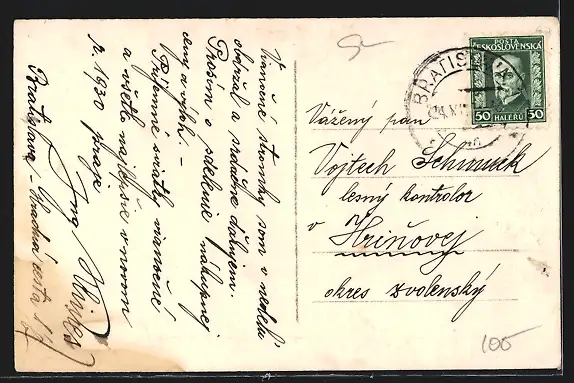 Vianočné stromky som v nedeľu
obdržal a srdečne ďakujem.
Prosím o sdelenie nákupnej
ceny a výloh. –
Príjemné sviatky vianočné
a všetko najlepšie v novom
r. 1930 praje
Bratislava –
Vážený pan
Vojtech
lesný kontrolor
v Hriňovej
okres zvolenský
POSTA
ČESKOSLOVENSKÁ
50 HALÉŘŮ 50
BRATISL
100